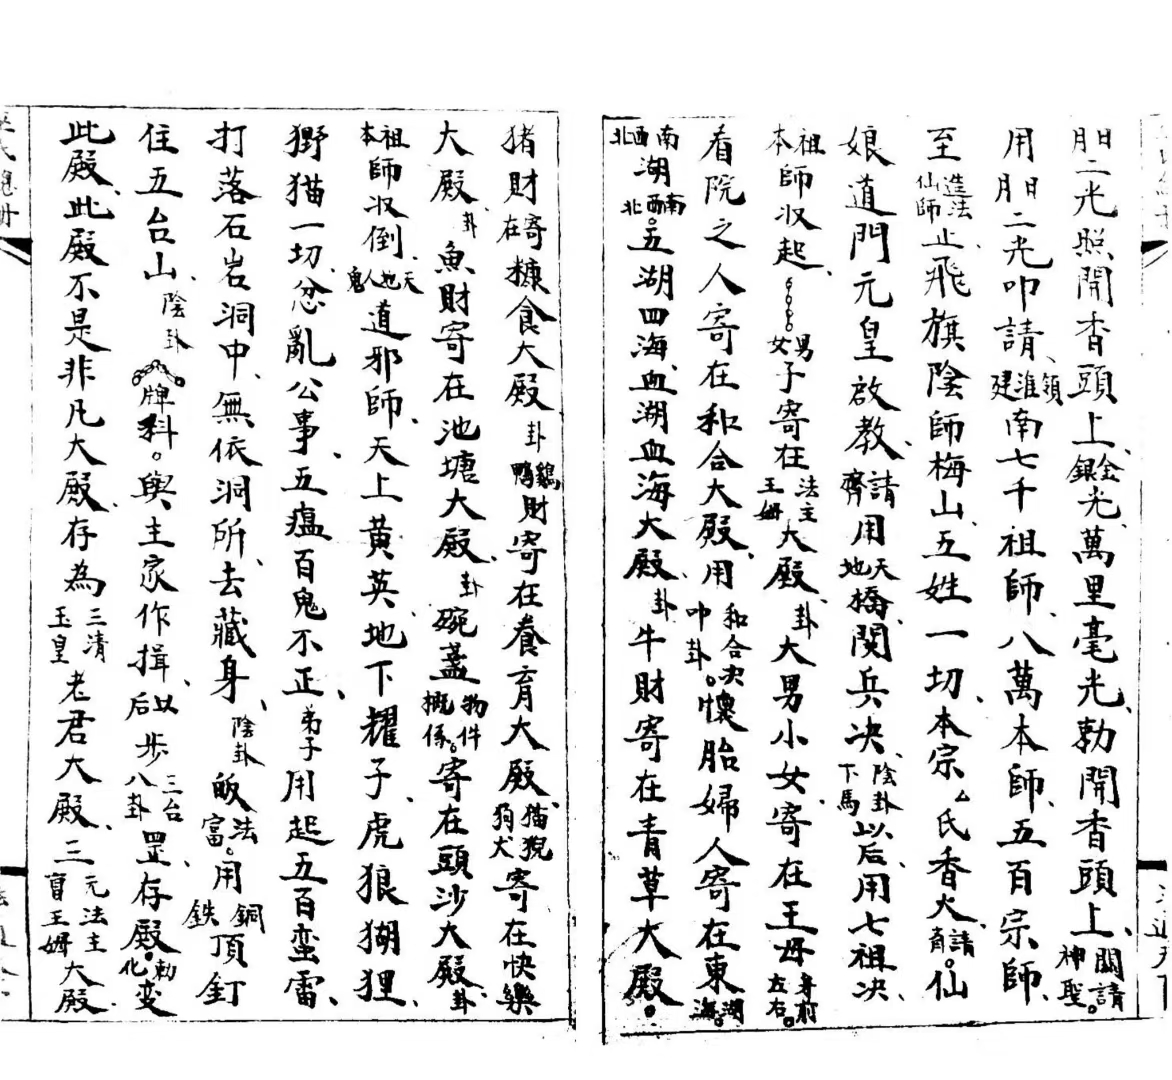 日月二光照開香頭上、金銀光、萬里毫光、勅開香頭上、關請神聖。
用日月二光叩請、領淮建南七千祖師、八萬本師、五百宗師、
至造法仙師止飛旗陰師梅山、五姓一切、本宗厶氏香火、請齊。仙
娘道門元皇啟教、請齊用天地橋関兵决、陰卦下馬以后、用七祖决
祖本師収起、男女子寄在法主王姆大殿、卦大男小女寄在王母身前左右。
看院之人寄在和合大殿、用和合决叩卦。懷胎婦人寄在東湖海。
南西北湖南西北。五湖四海、血湖血海大殿、卦牛財寄在青草大殿。
猪財寄在糠食大殿卦鷄鴨財寄在養育大殿、猫猊狗犬寄在快樂
大殿、卦魚財寄在池塘大殿、卦碗盞物件概係。寄在頭沙大殿、卦
祖本師収倒、天地人鬼道邪師、天上黄英、地下耀子、虎狼猢狸、
獨猫一切、忿亂公事、五瘟百鬼不正、弟子用起五百蛮雷、
打落石岩洞中、無依洞所、去藏身、陰卦皈法富。用銅鉄頂釘
住五台山、陰卦牌科。與主家作揖、以后步三台八卦罡、存殿。勅化变
此殿、此殿不是非凡大殿、存為三清玉皇老君大殿、三元法主盲王姆大殿、